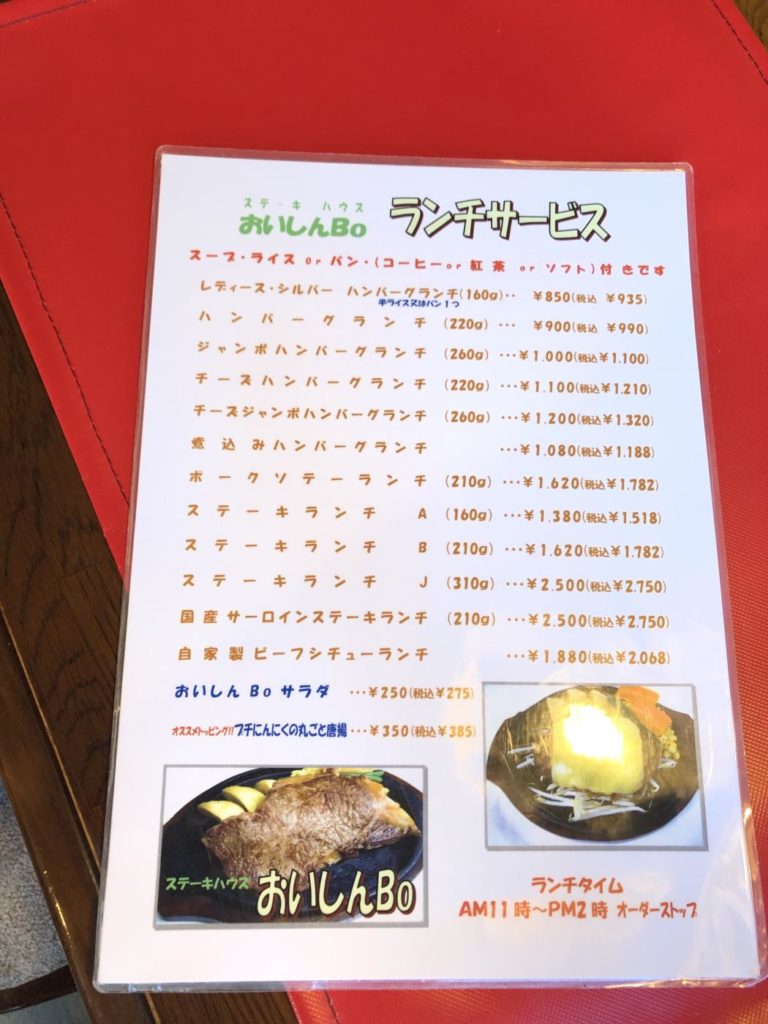 ステーキ ハウス
おいしんBo ランチサービス
スープ・ライス or パン・(コーヒー or 紅茶 or ソフト)付きです
レディース・シルバー ハンバーグランチ(160g)‥ ¥850(税込 ¥935)
半ライス又はパン1つ
ハンバーグランチ (220g) … ¥900(税込 ¥990)
ジャンボハンバーグランチ (260g) …¥1.000(税込¥1.100)
チーズハンバーグランチ (220g) …¥1.100(税込¥1.210)
チーズジャンボハンバーグランチ (260g) …¥1.200(税込¥1.320)
煮込みハンバーグランチ …¥1.080(税込¥1.188)
ポークソテーランチ (210g) …¥1.620(税込¥1.782)
ステーキランチ A (160g) …¥1.380(税込¥1.518)
ステーキランチ B (210g) …¥1.620(税込¥1.782)
ステーキランチ J (310g) …¥2.500(税込¥2.750)
国産サーロインステーキランチ (210g) …¥2.500(税込¥2.750)
自家製ビーフシチューランチ …¥1.880(税込¥2.068)
おいしんBoサラダ …¥250(税込¥275)
オススメトッピング!!プチにんにくの丸ごと唐揚…¥350(税込¥385)
ステーキハウス おいしんBo
ランチタイム
AM11時~PM2時 オーダーストップ